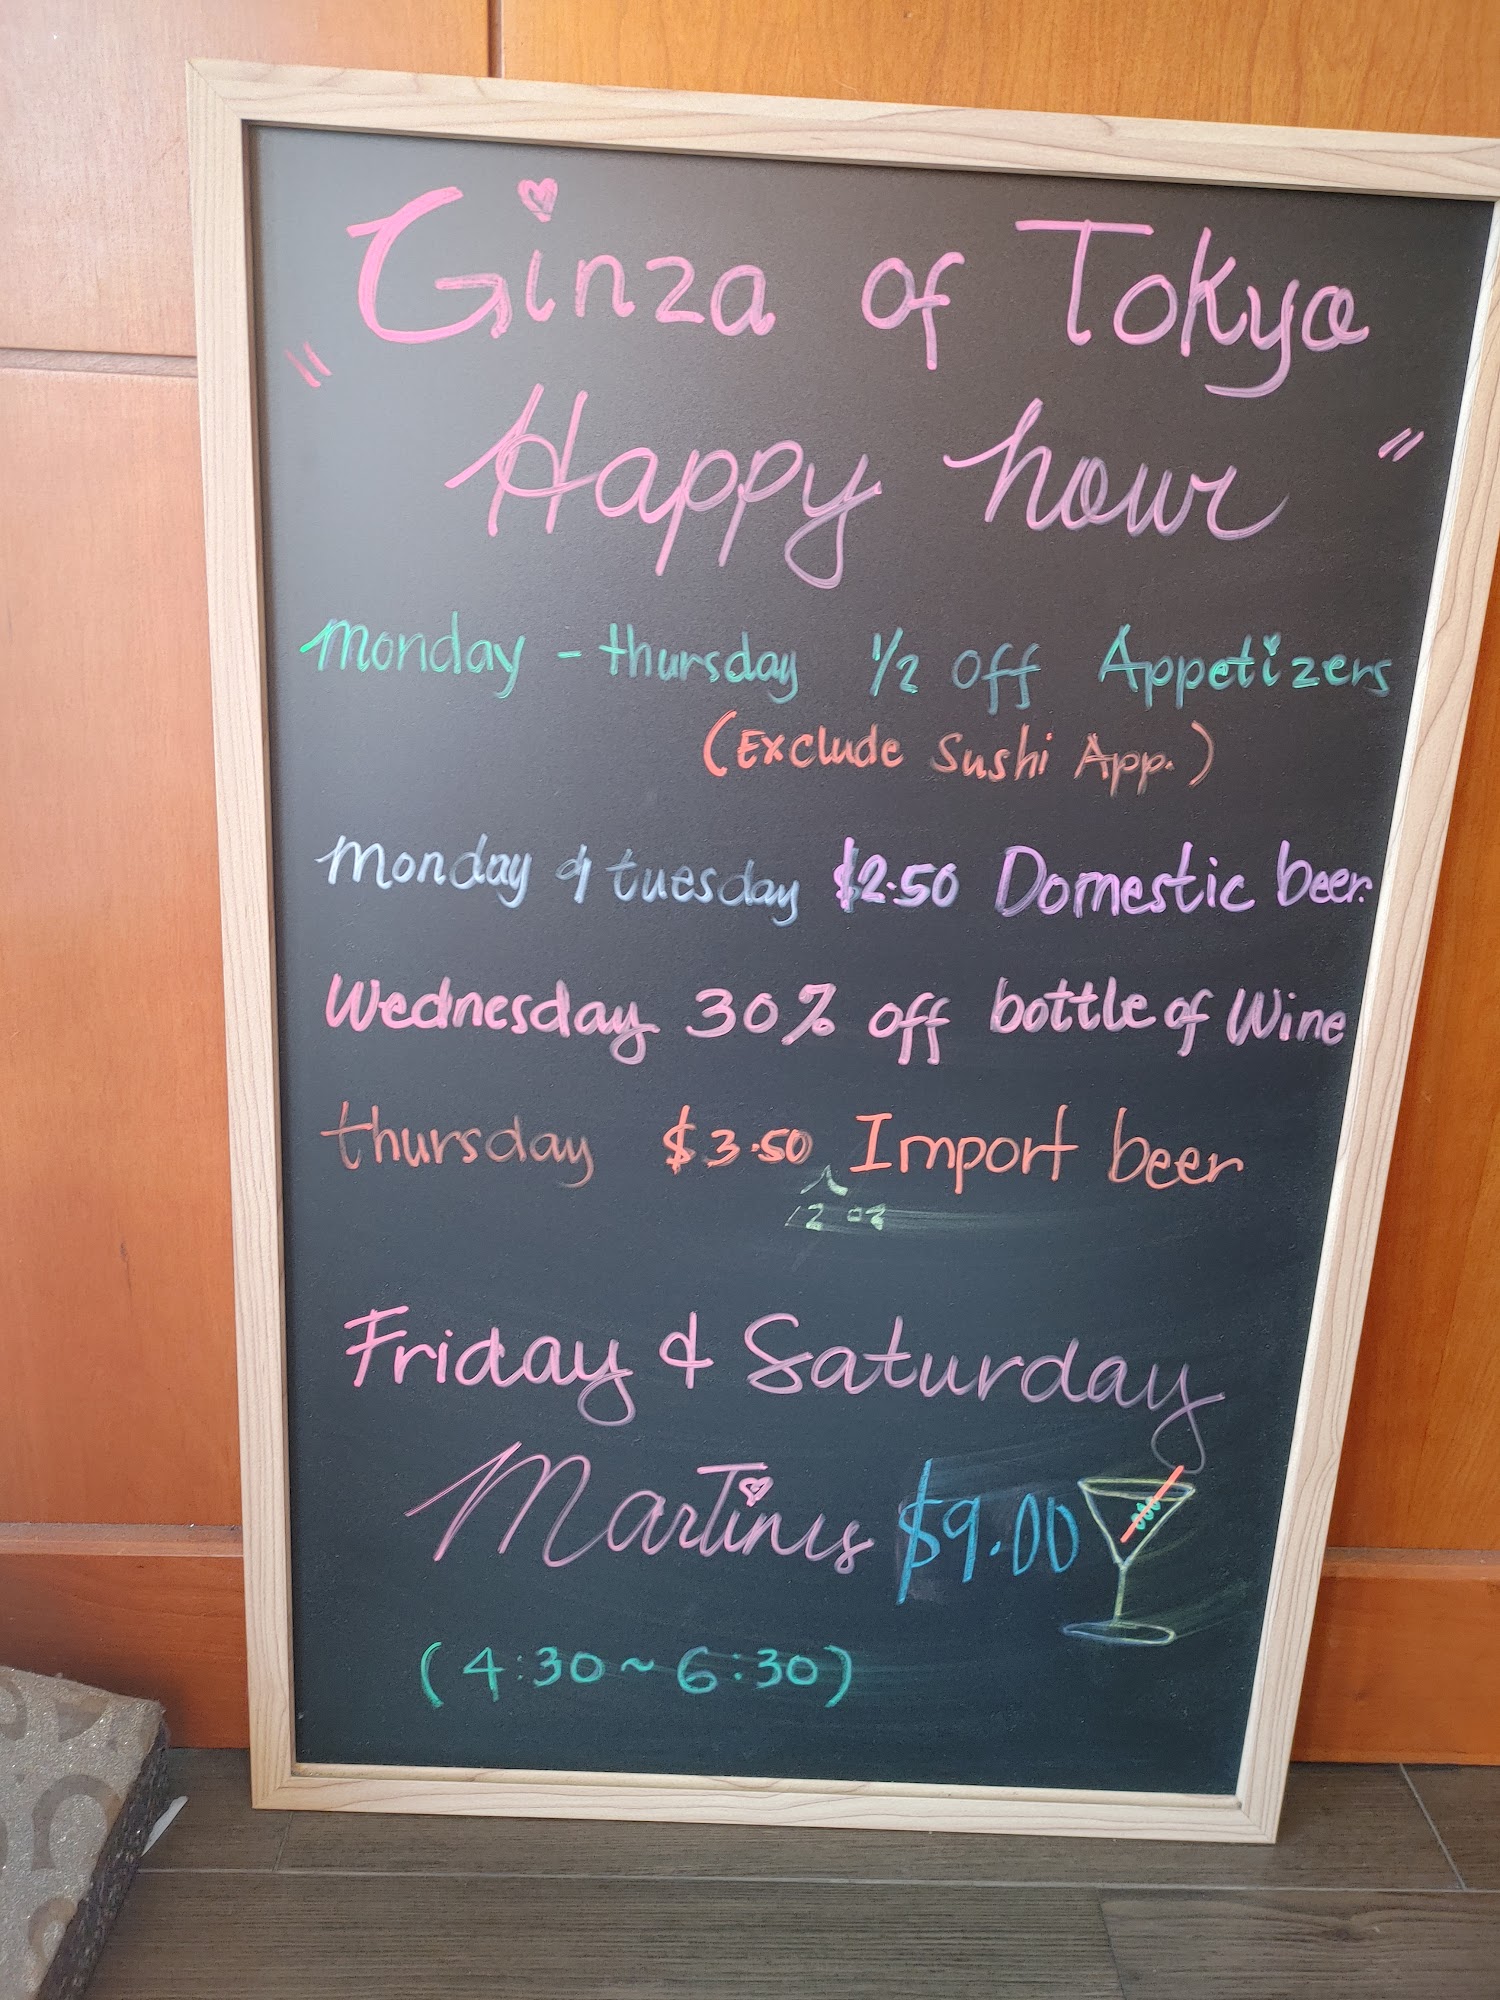 Ginza of Tokyo
"Happy hour"
Monday - thursday 1/2 off Appetizers
(Exclude Sushi App.)
Monday & tuesday $2.50 Domestic beer.
Wednesday 30% off bottle of Wine
thursday $3.50 Import beer
12 oz
Friday & Saturday
Martinis $9.00
(4:30~6:30)